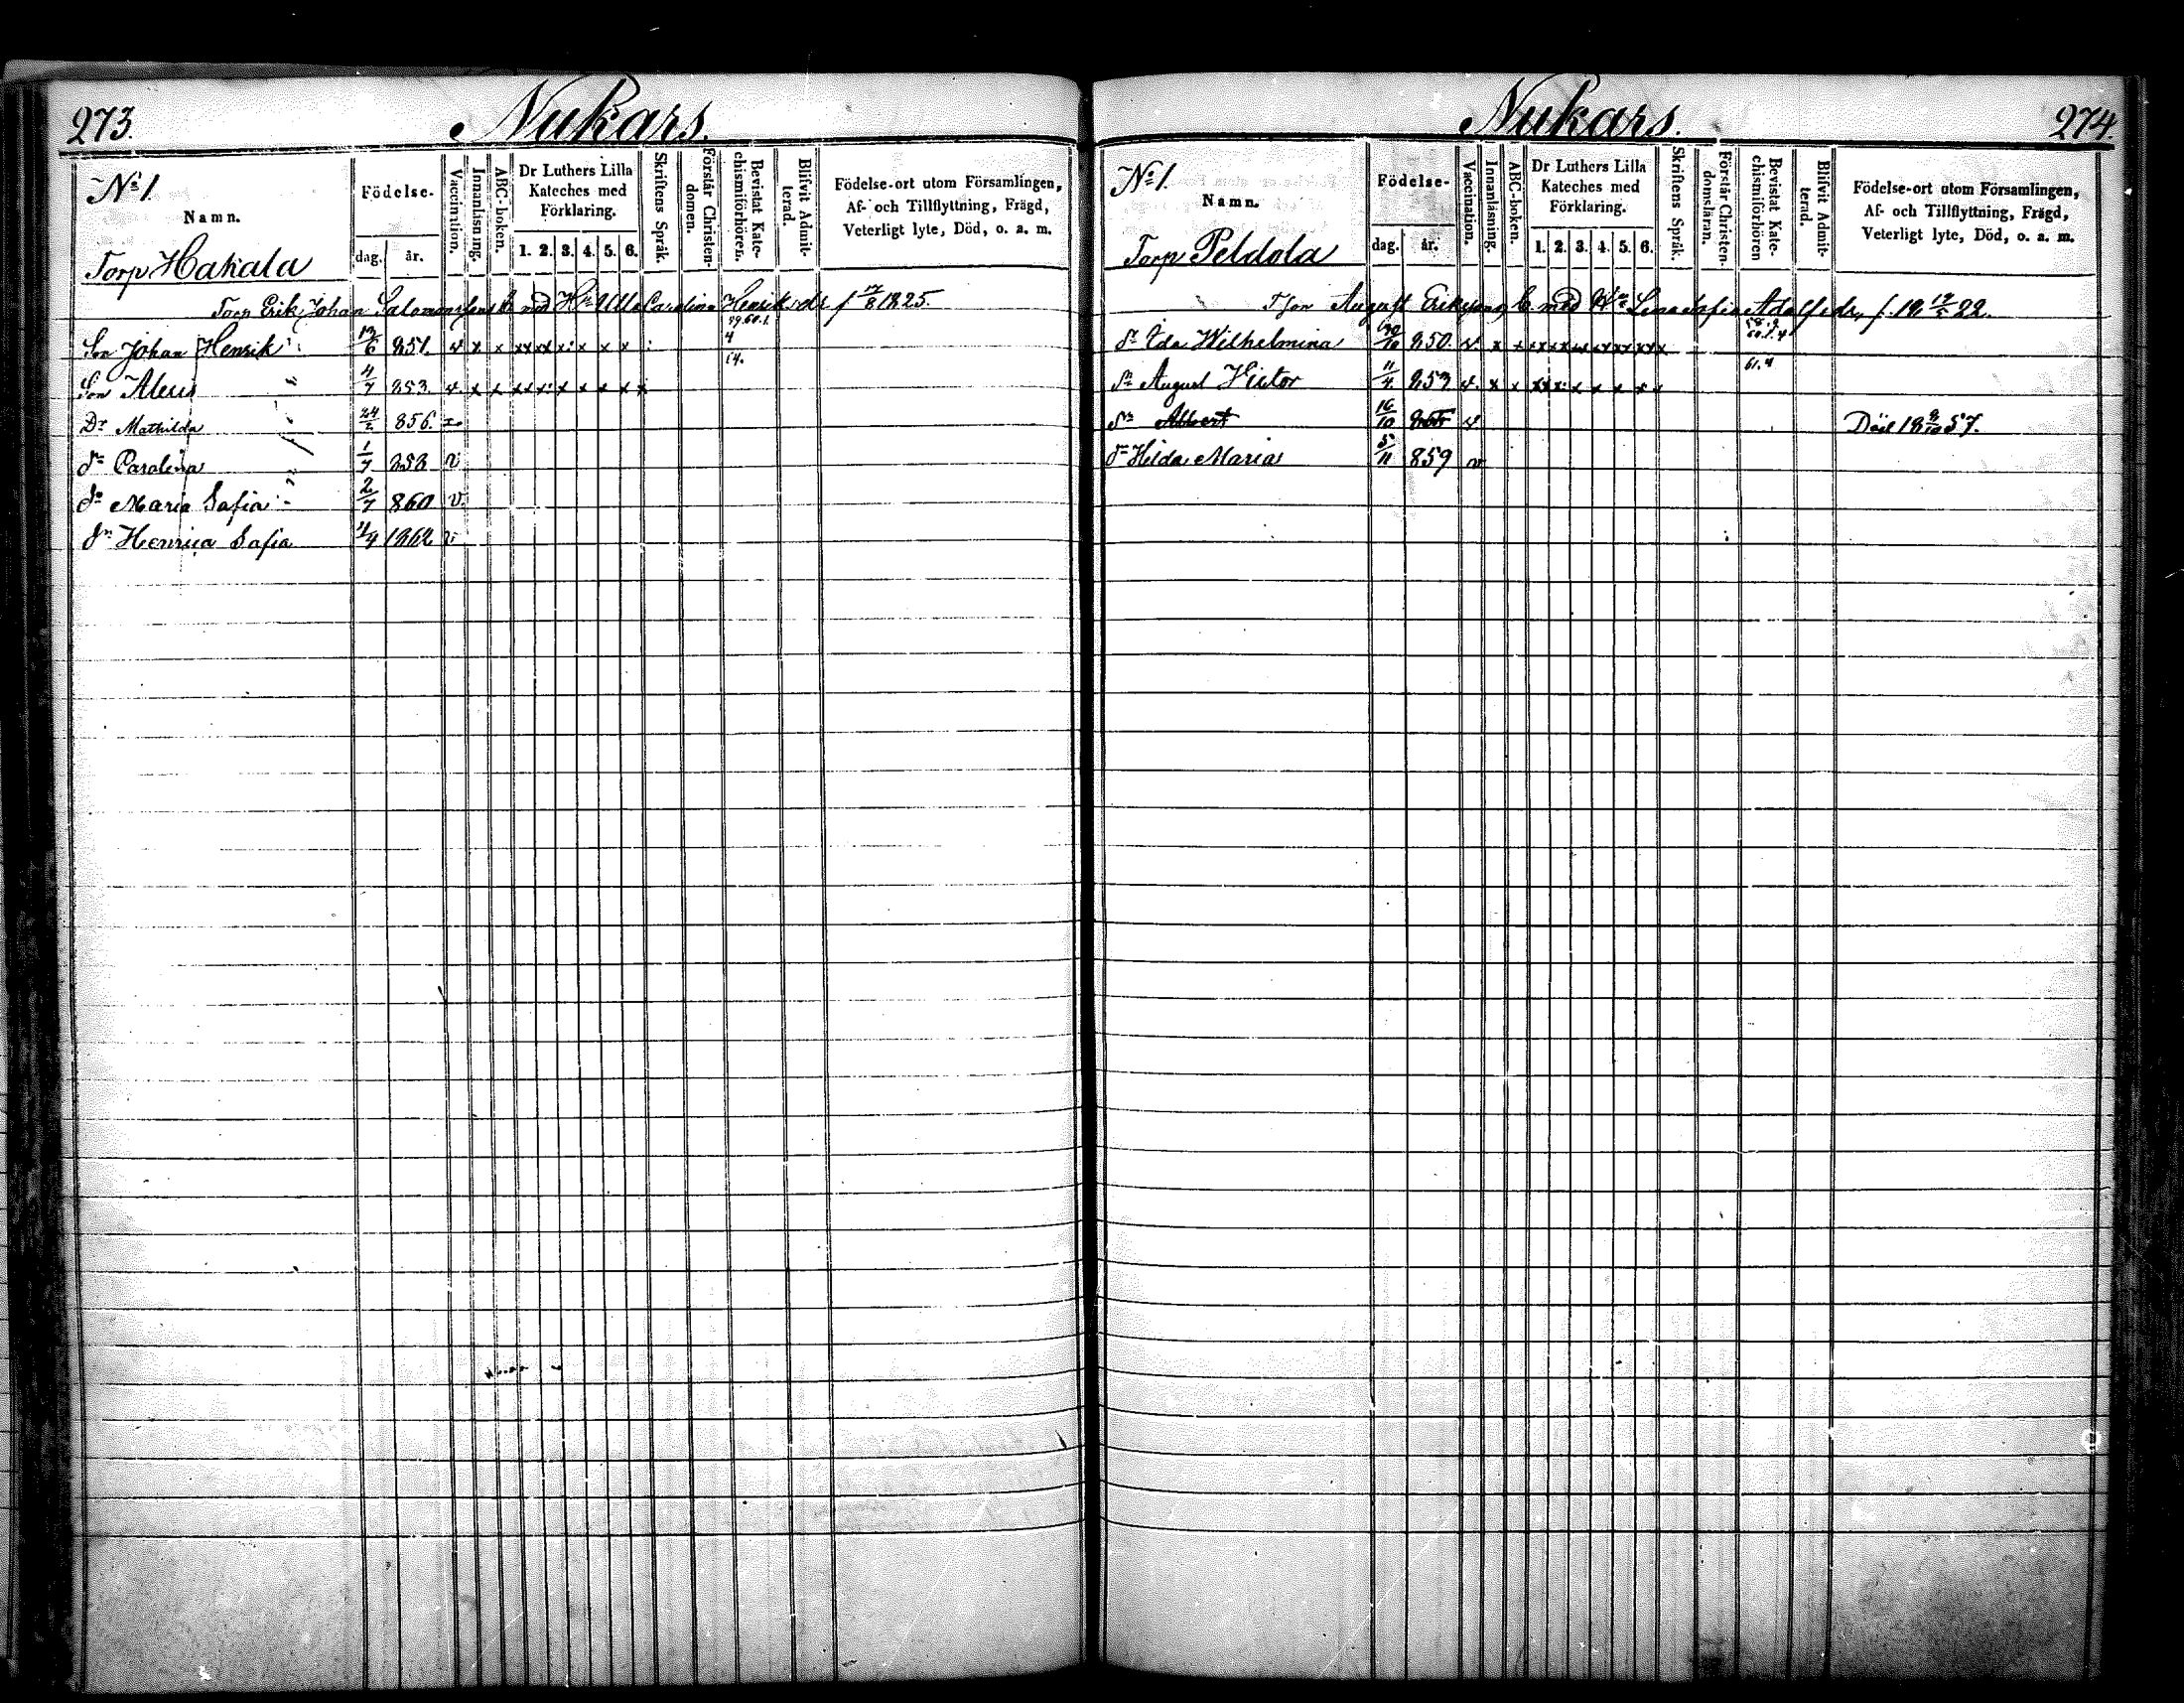 273.
Nukars.
No 1.
Namn.
Födelse-
dag. år.
Vaccination.
Innanläsning.
ABC-boken.
Dr Luthers Lilla Kateches med Förklaring.
1. 2. 3. 4. 5. 6.
Skriftens Språk.
Förstår Christendomen.
Bevistat Katechismiförhören.
Blifvit Admitterad.
Födelse-ort utom Församlingen,
Af- och Tillflyttning, Frägd,
Veterligt lyte, Död, o. a. m.
Torp Hakala
Torp Erik Johan Salomonss Sons med Ulla Carolina Henriksdr f 17/8 1825.
Son Johan Henrik 13/6 851. v x x xx xx x: x x x
Son Alexis 4/7 853. v x x
Dr Mathilda 24/2 856.
Dr Carolina 1/7 858 v
Dr Maria Safia 2/7 860 v.
Dr Henrica Safia 11/4 1862 v
274.
Nukars.
No 1.
Namn.
Födelse-
dag. år.
Vaccination.
Innanläsning.
ABC-boken.
Dr Luthers Lilla Kateches med Förklaring.
1. 2. 3. 4. 5. 6.
Skriftens Språk.
Förstår Christendomsläran.
Bevistat Katechismiförhören
Blifvit Admitterad.
Födelse-ort utom Församlingen,
Af- och Tillflyttning, Frägd,
Veterligt lyte, Död, o. a. m.
Torp Peldola
August Erikssons med Lina Safia Adolfsdr f. 18 22.
Dr Eda Wilhelmina 850. v
Sn August Victor 11/4 853 v. x x
61.4
Sn Albert 16/10 v Död 18 57.
Dr Hilda Maria 5/11 859 v